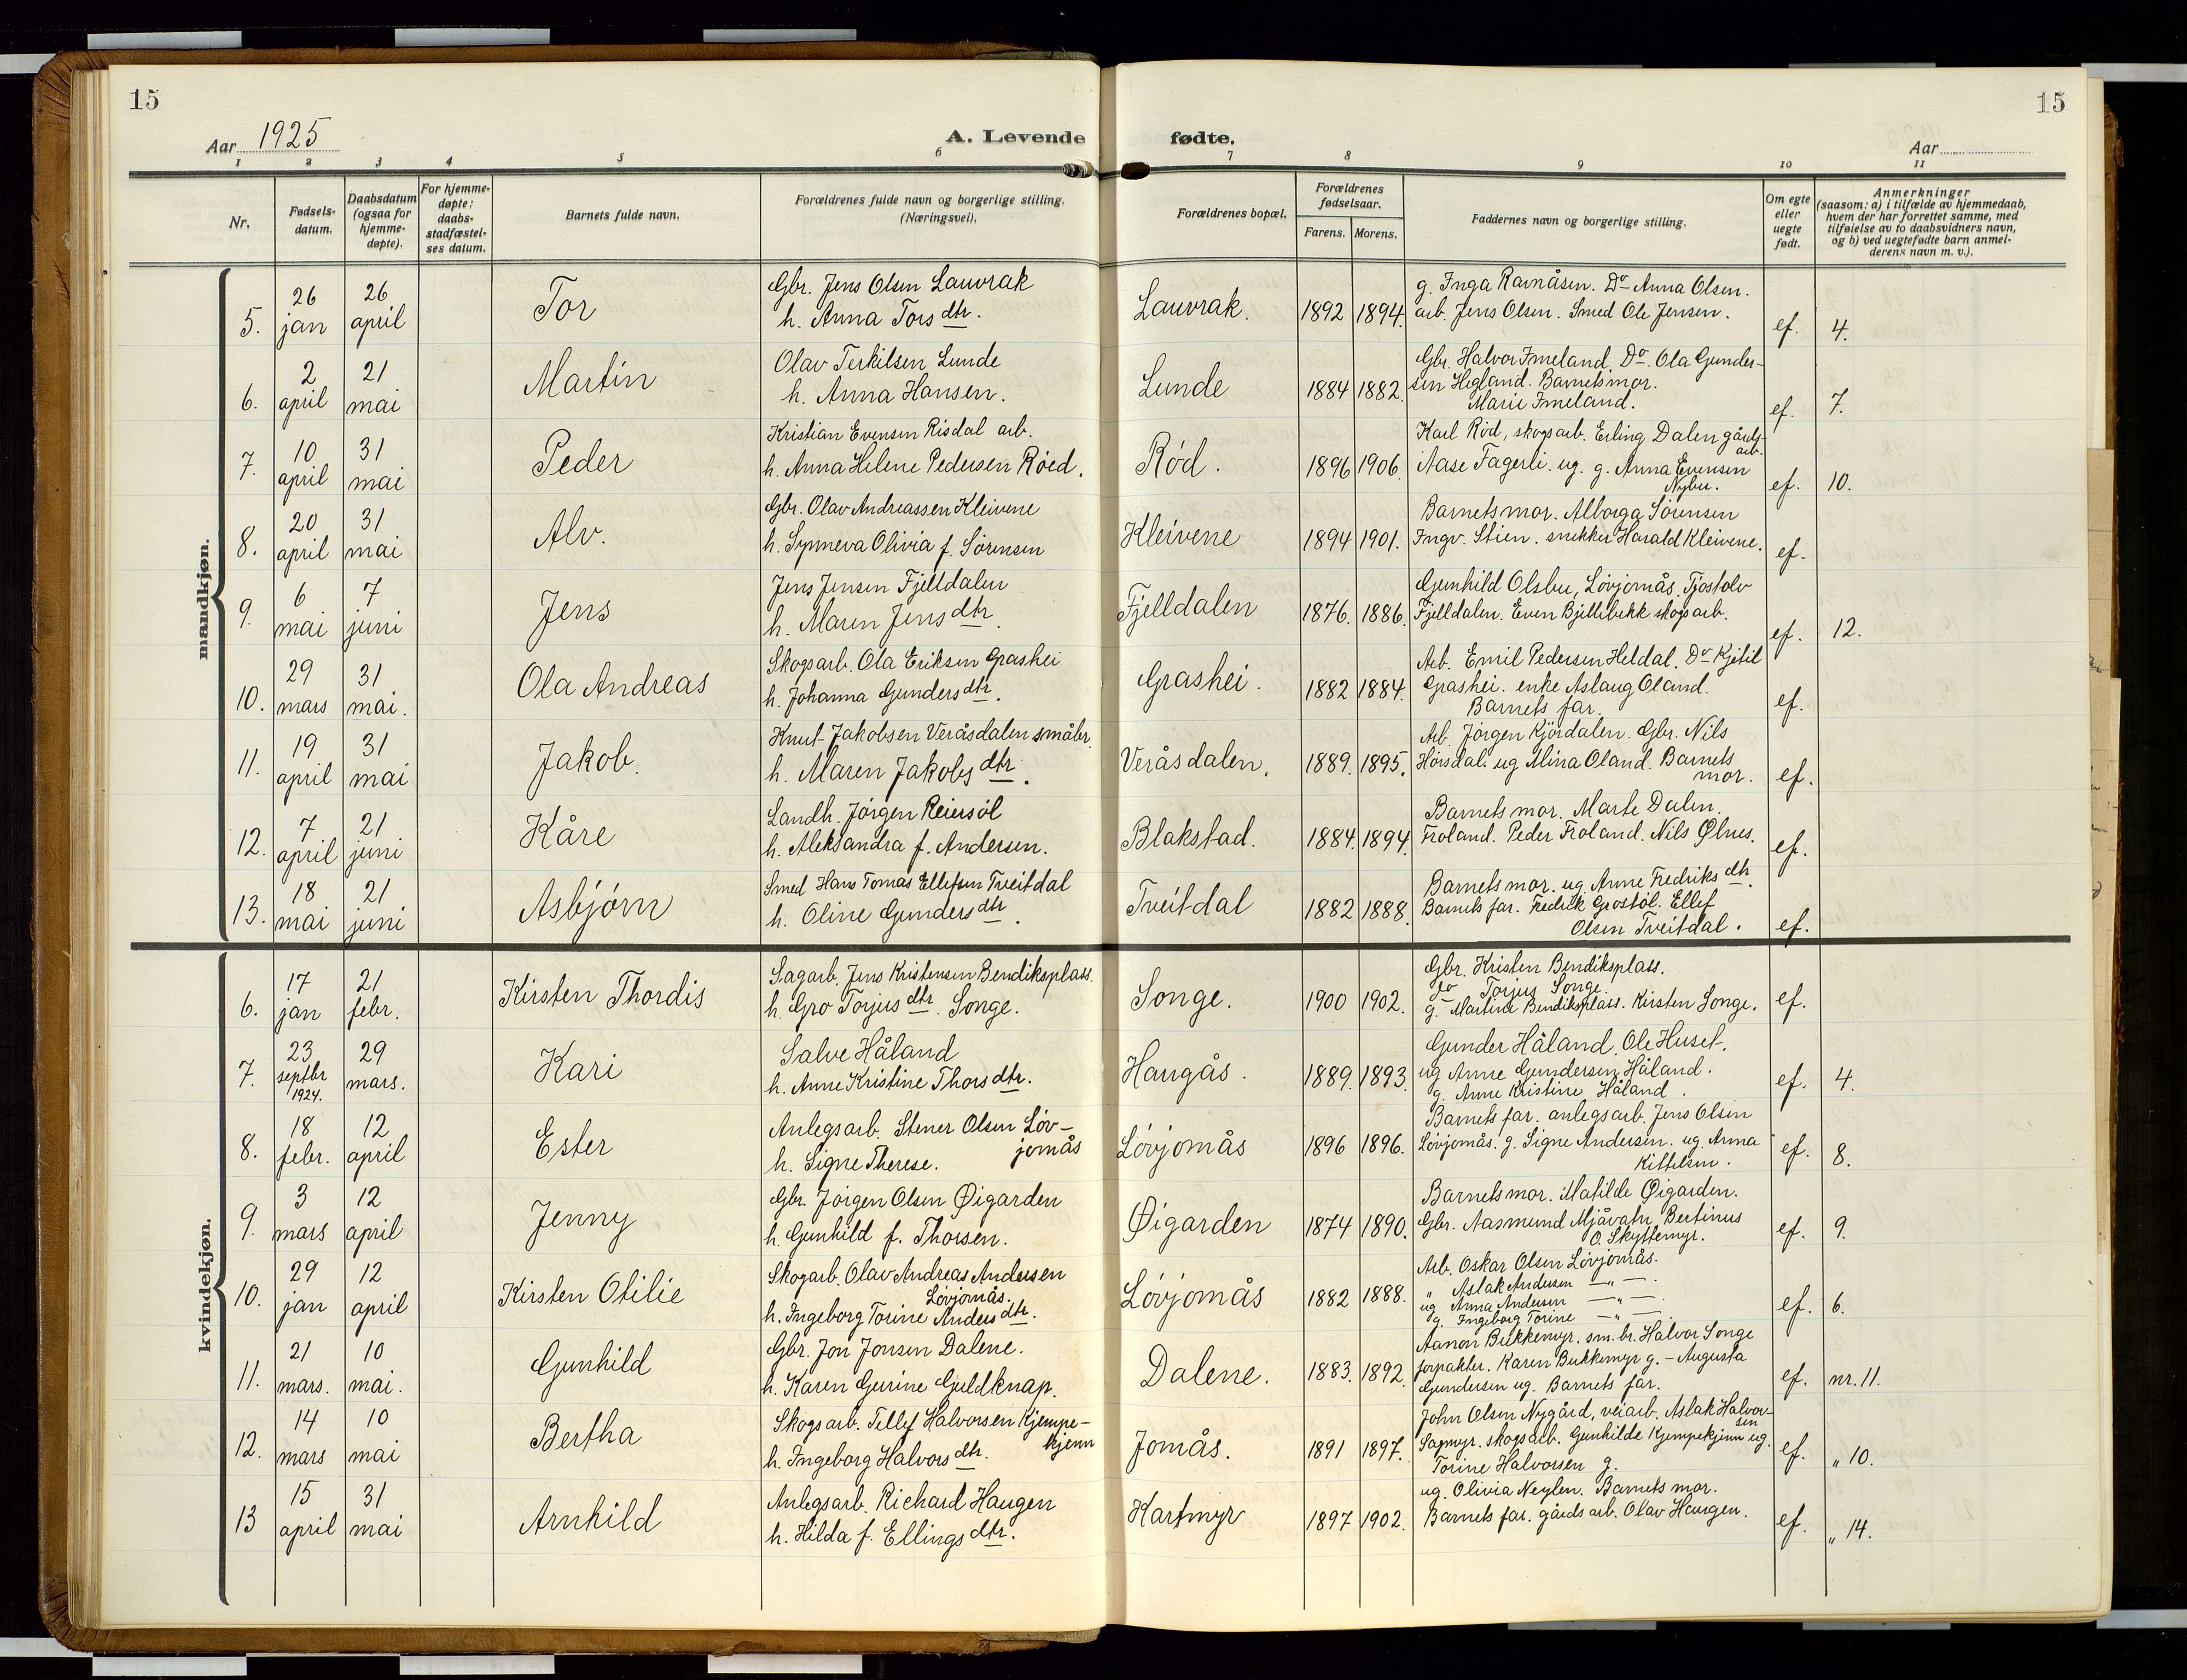 15
15
Aar 1925
A. Levende fødte.
Aar
1 2 3 4 5 6 7 8 9 10 11
Nr.
Fødsels-
datum.
Daabsdatum
(ogsaa for
hjemme-
døpte).
For hjemme-
døpte:
daabs-
stadfæstel-
ses datum.
Barnets fulde navn.
Forældrenes fulde navn og borgerlige stilling.
(Næringsvei).
Forældrenes bopæl.
Forældrenes
fødselsaar.
Farens. Morens.
Faddernes navn og borgerlige stilling.
Om egte
eller
uegte
født.
Anmerkninger
(saasom: a) i tilfælde av hjemmedaab,
hvem der har forrettet samme, med
tilføielse av to daabsvidners navn,
og b) ved uegtefødte barn anmel-
derens navn m. v.).
mandkjøn.
5. 26 jan 26 april Tor
Gbr. Jens Olsen Lauvrak
h. Anna Torsdtr.
Lauvrak. 1892 1894.
g. Inga Ravnåsen. Do Anna Olsen.
arb. Jens Olsen. Smed Ole Jensen.
ef. 4.
6. 2 april 21 mai Martin
Olav Terkilsen Lunde
h. Anna Hansen.
Lunde 1884 1882.
Gbr. Halvor Imeland. Do. Ola Gunder-
sen Hegland. Barnets mor.
Marie Imeland.
ef. 7.
7. 10 april 31 mai Peder
Kristian Evensen Risdal arb.
h. Anna Helene Pedersen Röed.
Röd. 1896 1906
Karl Röd, skogsarb. Erling Dalen gårds-
arb.
Aase Fagerli. ug. g. Anna Evensen
Nybu.
ef. 10.
8. 20 april 31 mai Alv.
Gbr. Olav Andreassen Kleivene
h. Synneva Olivia f. Sörensen
Kleivene 1894 1901.
Barnets mor. Alborga Sörensen
Ingv. Stien. snekker Harald Kleivene.
ef.
9. 6 mai 7 juni Jens
Jens Jensen Fjelldalen
h. Maren Jensdtr.
Fjelldalen 1876. 1886.
Gunhild Olsbu, Lövjomås. Tjostolv
Fjelldalen. Even Bjellebekk skogsarb.
ef. 12.
10. 29 mars 31 mai. Ola Andreas
Skogsarb. Ola Eriksen Grashei
h. Johanna Gundersdtr.
Grashei. 1882 1884.
Arb. Emil Pedersen Heldal. Do Kjetil
Grashei. enke Aslaug Oland.
Barnets far.
ef.
11. 19 april 31 mai Jakob.
Knut Jakobsen Veråsdalen småbr.
h. Maren Jakobsdtr.
Veråsdalen. 1889. 1895.
Arb. Jörgen Kjördalen. Gbr. Nils
Hörsdal. ug Alina Oland. Barnets
mor.
ef.
12. 7 april 21 juni Kåre
Landh. Jörgen Reiersöl
h. Aleksandra f. Andersen.
Blakstad. 1884. 1894.
Barnets mor. Marte Dalen.
Froland. Peder Froland. Nils Ølnes.
ef.
13. 18 mai 21 juni Asbjörn
Smed Hans Tomas Ellefsen Tveitdal
h. Oline Gundersdtr.
Tveitdal 1882 1888.
Barnets mor. ug. Anne Fredriksdtr.
Barnets far. Fredrik Grostöl. Ellef
Olsen Tveitdal.
ef.
kvindekjøn.
6. 17 jan 21 febr. Kirsten Thordis
Sagarb. Jens Kristensen Bendiksplass.
h. Gro Torjusdtr. Songe.
Songe. 1900 1902.
Gbr. Kristen Bendiksplass.
Do Torjus Songe.
g. Martine Bendiksplass. Kirsten Songe.
ef.
7. 23 septbr 1924. 29 mars. Kari
Salve Håland
h. Anne Kristine Thorsdtr.
Haugås. 1889. 1893.
Gunder Håland. Ole Huset.
ug Anne Gundersen Håland.
g. Anne Kristine Håland.
ef. 4.
8. 18 febr. 12 april Ester
Anlegsarb. Stener Olsen Löv-
jomås
h. Signe Therese.
Lövjomås 1896 1896.
Barnets far. anlegsarb. Jens Olsen
Lövjomås. g. Signe Andersen. ug. Anna
Kittelsen.
ef. 8.
9. 3 mars 12 april Jenny
Gbr. Jörgen Olsen Øigarden
h. Gunhild f. Thorsen.
Øigarden 1874 1890.
Barnets mor. Matilde Øigarden.
Gbr. Aasmund Mjåvatn, Bertinus
O. Skyttemyr.
ef. 9.
10. 29 jan 12 april Kirsten Otilie
Skogarb. Olav Andreas Andersen
Lövjomås.
h. Ingeborg Torine Andersdtr.
Lövjomås 1882 1888.
Arb. Oskar Olsen Lövjomås.
" Aslak Andersen — " —.
ug Anna Andersen — " —.
g. Ingeborg Torine — " —.
ef. 6.
11. 21 mars. 10 mai. Gunhild
Gbr. Jon Jonsen Dalene.
h. Karen Gurine Guldknap.
Dalene. 1883. 1892.
Aanon Bukkemyr. sm. br. Halvor Songe
forpakter. Karen Bukkemyr g. - Augusta
Gundersen ug. Barnets far.
ef. nr. 11.
12. 14 mars 10 mai Bertha
Skogsarb. Tellef Halvorsen Kjempe-
kjenn
h. Ingeborg Halvorsdtr.
Jomås. 1891 1897.
John Olsen Nygård, veiarb. Aslak Halvor-
sen
Sagmyr. skogsarb. Gunhilde Kjempekjenn ug.
Torine Halvorsen g.
ef. " 10.
13 15 april 31 mai Arnhild
Anlegsarb. Richard Haugen
h. Hilda f. Ellingsdtr.
Hartmyr 1897 1902.
ug. Olivia Neylen. Barnets mor.
Barnets far. gårdsarb. Olav Haugen.
ef. " 14.